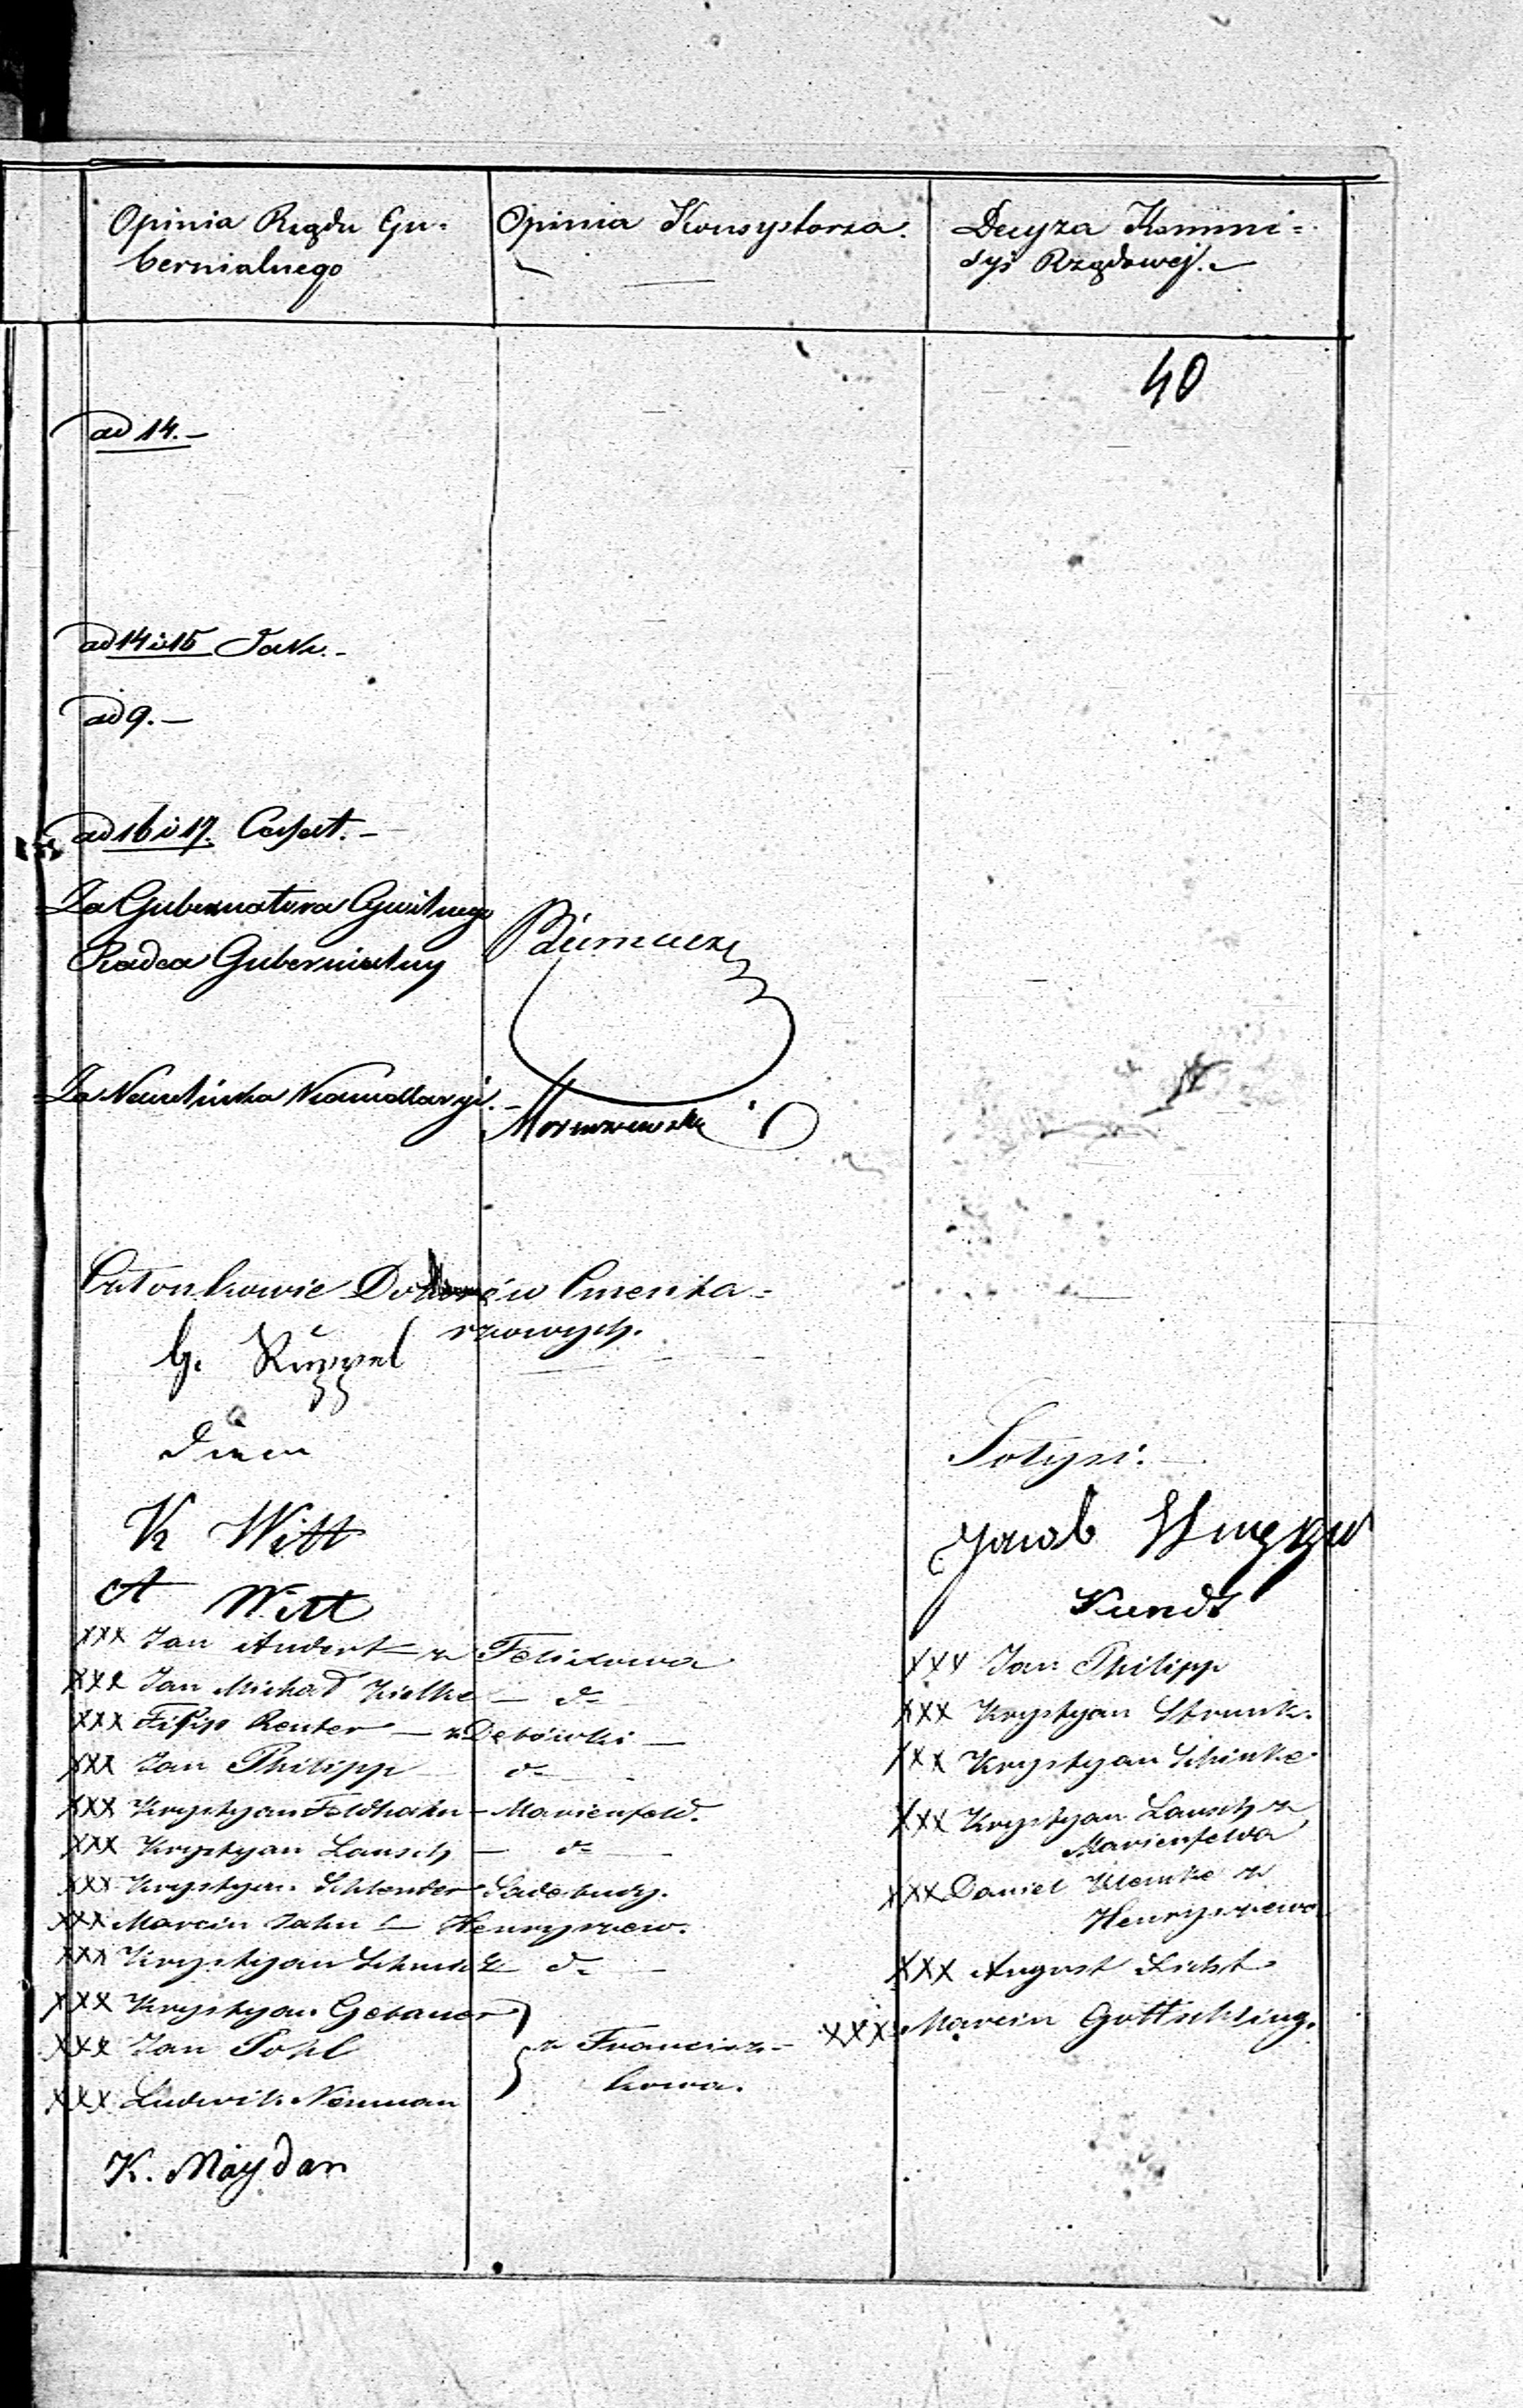 Opinia Rządu Gu-
bernialnego
Opinia Konsystorza.
Decyza Kommi=
syi Rządowej.
40
ad 14.-
ad 14 i 15 Tak.-
ad 9.-
ad 16 i 17.
Za Gubernatora Cywilnego
Radca Gubernialny
Za Naczelnika Kancellaryi.
Członkowie Dozorów Cmenta=
rzowych.
G. Ruppel
K Witt
A Witt
xxx Jan Andert z Felixowa
xxx Jan Michał Kielke - do
xxx Filip Reuter - z Dębówki -
xxx Jan Philipp do
xxx Krystyan Feldhahn - Marienfeld.
xxx Krystyan Lausch - do
xxx Krystyan Schlender
xxx Marcin Jahn - Henryszew.
xxx Krystyan do
xxx Krystyan Gebauer
xxx Jan Pohl } z Francisz-
kowa.
xxx Ludwik Neuman
K. Maydan
Sołtysi.
Jacob
Kundt
xxx Jan Philipp
xxx Krystyan Strunk.
xxx Krystyan Schinke
xxx Krystyan Lausch z
Marienfelda
xxx Daniel Klemke z
Henryszewa
xxx August Licht
xxx Marcin Gottschling.